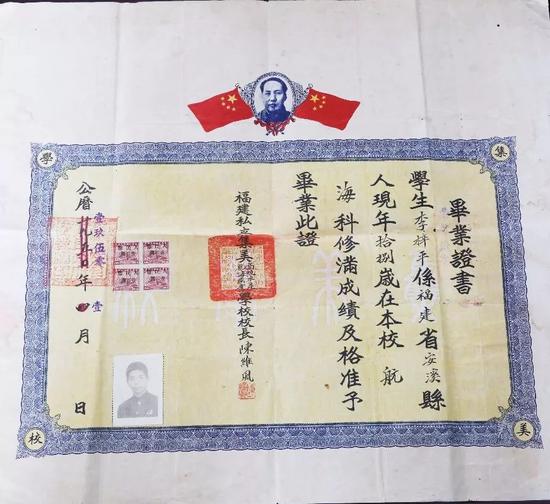 集美學校
畢業證書
學生李平係福建省安溪縣
人現年拾捌歲在本校航
海科修滿成績及格准予
畢業此證
福建私立集美學校校長陳維風
公曆壹玖伍零年壹月日